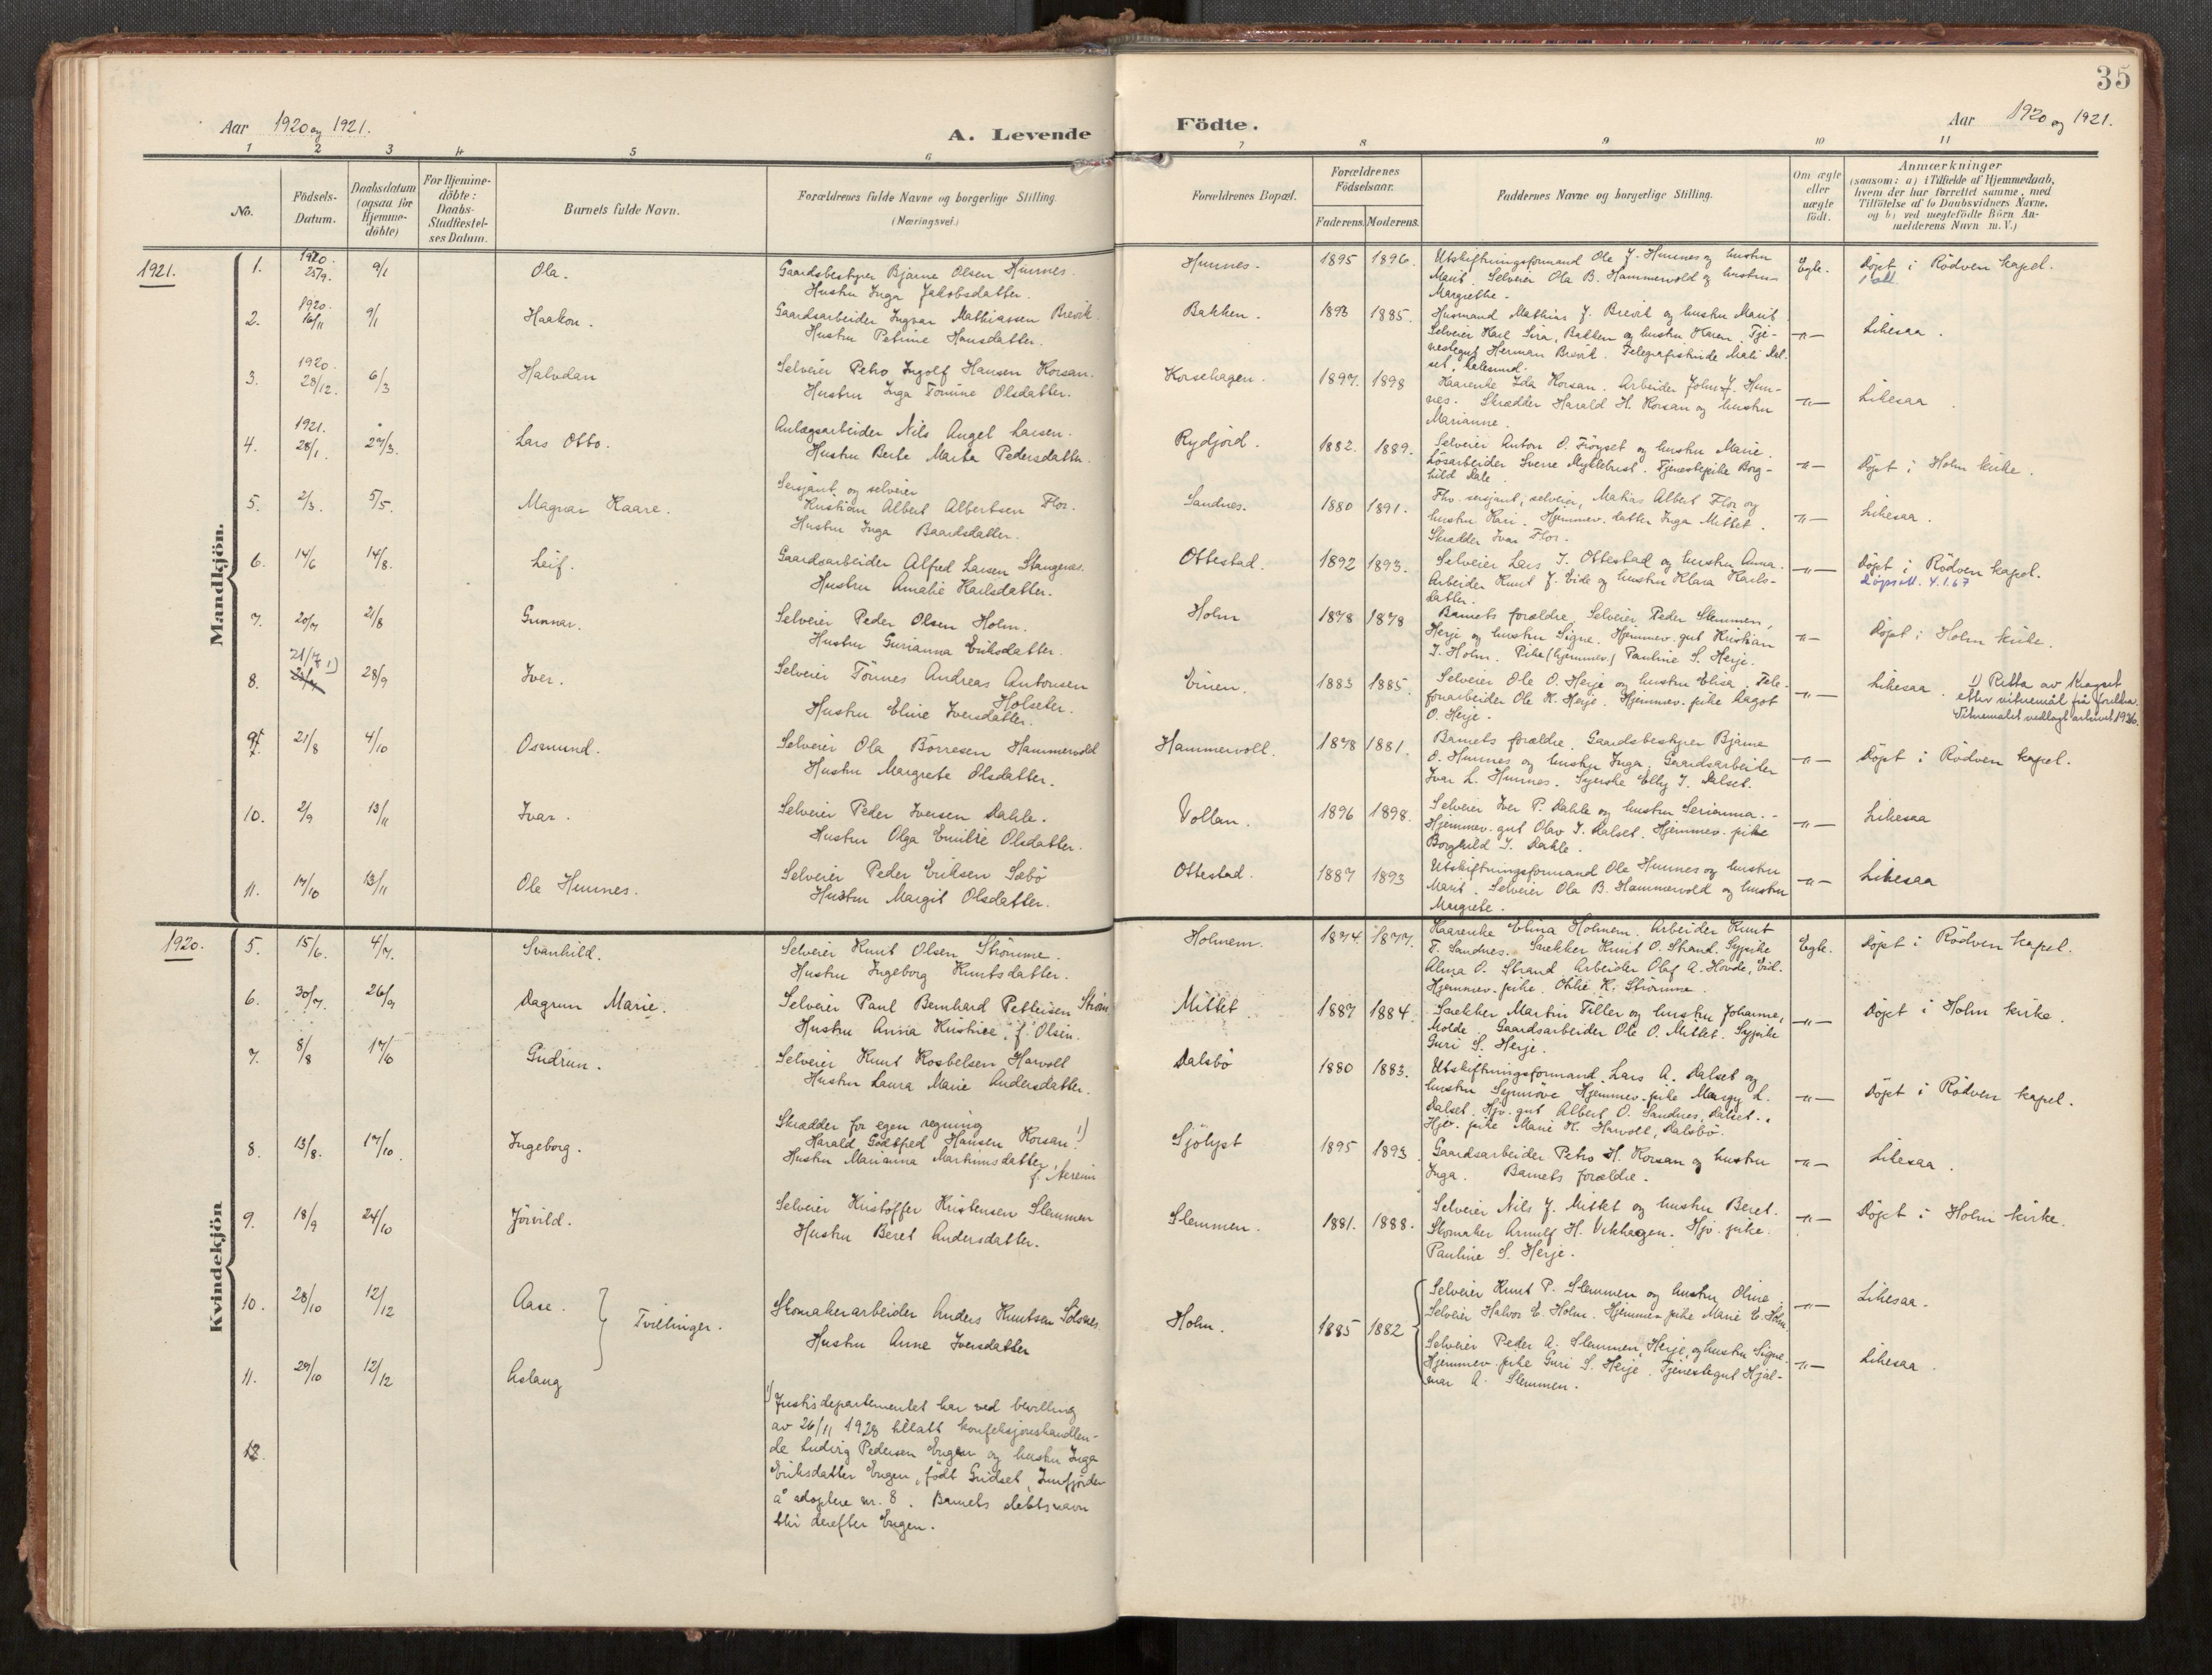 35
Aar 1920 og 1921.
A. Levende Födte.
Aar 1920 og 1921.
1 2 3 4 5 6 7 8 9 10 11
No.
Födsels-Datum.
Daabsdatum (ogsaa for Hjemme-döbte)
For Hjemme-döbte: Daabs-Stadfæstel-ses Datum.
Barnets fulde Navn.
Forældrenes fulde Navne og borgerlige Stilling.
(Næringsvei.)
Forældrenes Bopæl.
Forældrenes Födselsaar.
Faderens. Moderens.
Faddernes Navne og borgerlige Stilling.
Om ægte eller uægte födt.
Anmærkninger
(saasom: a) i Tilfælde af Hjemmedaab,
hvem der har forrettet samme, med
Tilföielse af to Daabsvidners Navne,
og b) ved uægtefödte Börn An-
melderens Navn m. V.)
Mandkjön.
1921.
1. 1920. 25/9. 9/1 Ola.
Gaardsbestyrer Bjarne Olsen Hunnes.
Hustru Inga Jakobsdatter.
Hunnes. 1895 1896.
Utskiftningsformand Ole J. Hunnes og hustru
Marit. Selveier Ola B. Hammervold og hustru
Margrethe.
Egte. Döpt i Rödven kapel.
2. 1920. 16/11 9/1 Haakon.
Gaardsarbeider Ingvar Mathiassen Brevik.
Hustru Petrine Hansdatter.
Bakken. 1893 1885.
Husmand Mathias J. Brevik og hustru Marit
Selveier Karl Sira, Bakken og hustru Karen. Tje-
nestegut Herman Brevik. Telegrafistinde Mali Dal-
set, Aalesund.
-"- Likesaa.
3. 1920. 28/12. 6/3 Halvdan
Selveier Petro Ingolf Hansen Korsan.
Hustru Inga Tomine Olsdatter.
Korsehagen. 1897. 1898
Haarenke Ida Korsan. Arbeider John J. Hun-
nes. Skrædder Harald H. Korsan og hustru
Marianne.
-"- Likesaa.
4. 1921. 28/1. 27/3. Lars Otto.
Anlægsarbeider Nils Angel Larsen.
Hustru Berte Marta Pedersdatter.
Rydjord. 1882. 1889.
Selveier Anton O. Fröyset og hustru Marie.
Lösarbeider Sverre Myklebust. Tjenestepike Borg-
hild Dale.
-"- Döpt i Holm kirke.
5. 2/3. 5/5. Magnar Kaare.
Sersjant og selveier
Kristian Albert Albertsen Flor.
Hustru Inga Baardsdatter.
Sandnes. 1880 1891.
Fhv. sersjant, selveier, Matias Albert Flor og
hustru Kari. Hjemmev. datter Inga Mittet.
Skrædder Ivar Flor.
-"- Likesaa.
6. 14/6 14/8. Leif.
Gaardsarbeider Alfred Larsen Stangenes.
Hustru Amalie Karlsdatter.
Ottestad. 1892 1893.
Selveier Lars I. Ottestad og hustru Anna.
Arbeider Knut J. Eide og hustru Klara Karls-
datter.
-"- Döpt i Rödven kapel.
Döpsatt. 4.1.67
7. 20/7 21/8 Gunnar.
Selveier Peder Olsen Holm.
Hustru Gurianna Eriksdatter.
Holm 1878 1878
Barnets forældre. Selveier Peder Slemmen,
Herje og hustru Signe. Hjemmev. gut Kristian
I. Holm. Pike (hjemmev.) Pauline S. Herje.
-"- Döpt i Holm kirke.
8. 21/7 1) 28/9 Iver.
Selveier Tönnes Andreas Antonsen
Holseter.
Hustru Eline Iversdatter.
Einen. 1883 1885.
Selveier Ole O. Herje og hustru Elisa. Tele-
fonarbeider Ole K. Herje. Hjemmev. pike Dagot
O. Herje.
-"- Likesaa. 1) Retta av
etter vitnemål frå foreldra.
Vitnemålet vedlagt arkivet 1936.
9. 21/8 4/10 Osmund.
Selveier Ola Börresen Hammervold
Hustru Margrete Olsdatter.
Hammervoll. 1878 1881.
Barnets forældre. Gaardsbestyrer Bjarne
O. Hunnes og hustru Inga. Gaardsarbeider
Ivar L. Hunnes. Syerske Elly I. Dalset.
-"- Döpt i Rödven kapel.
10. 2/9 13/11 Ivar.
Selveier Peder Iversen Dahle.
Hustru Olga Emilie Olsdatter.
Vollan. 1896 1898.
Selveier Iver P. Dahle og hustru Serianna.
Hjemmev. gut Olav I. Dalset. Hjemmev. pike
Borghild I. Dahle.
-"- Likesaa
11. 17/10 13/11 Ole Hunnes.
Selveier Peder Eriksen Sæbö
Hustru Margit Olsdatter.
Ottestad. 1887 1893
Utskiftningsformand Ole Hunnes og hustru
Marit. Selveier Ola B. Hammervold og hustru
Margrete.
-"- Likesaa
Kvindekjön
1920.
5. 15/6. 4/7. Svanhild.
Selveier Knut Olsen Strömme.
Hustru Ingeborg Knutsdatter.
Holmem. 1874. 1877.
Haarenke Elina Holmem. Arbeider Knut
T. Sandnes. Snekker Knut O. Strand. Sypike
Alma O. Strand. Arbeider Olaf A. Hovde, Eid.
Hjemmev. pike Otilie K. Strömme.
Egte. Döpt i Rödven kapel.
6. 30/7. 26/9 Dagrun Marie.
Selveier Paul Bernhard Pettersen Ström
Hustru Anna Kristine, f. Olsen.
Mittet 1887 1884.
Snekker Martin Tiller og hustru Johanne,
Molde. Gaardsarbeider Ole O. Mittet. Sypike
Guri S. Herje.
-"- Döpt i Holm kirke.
7. 8/8 17/10 Gudrun.
Selveier Knut Rosbelsen Harvoll
Hustru Laura Marie Andersdatter.
Dalsbö 1880 1883.
Utskiftningsformand Lars A. Dalset og
hustru Synnöve Hjemmev. pike Margy L.
Dalset. Hjv. gut Albert O. Sandnes, Dalset.
Hjv. pike Marie K. Harvoll, Dalsbö.
-"- Döpt i Rödven kapel.
8. 13/8. 17/10. Ingeborg.
Skrædder for egen regning
Harald Godtfred Hansen Korsan. 1)
Hustru Marianna Martinusdatter,
f. Nerem
Sjölyst 1895 1893.
Gaardsarbeider Petro H. Korsan og hustru
Inga. Barnets forældre.
-"- Likesaa.
9. 18/9 24/10 Jörild.
Selveier Kristoffer Kristensen Slemmen
Hustru Beret Andersdatter.
Slemmen. 1881. 1888.
Selveier Nils J. Mittet og hustru Beret.
Skomaker Arnulf H. Vikhagen. Hjv. pike.
Pauline S. Herje.
-"- Döpt i Holm kirke.
10. 28/10 12/12 Aase. Tvillinger.
Skomakerarbeider Anders Knutsen Solsnes.
Hustru Anne Iversdatter
Holm. 1885 1882
Selveier Knut P. Slemmen og hustru Oline.
Selveier Halvor E. Holm. Hjemmev. pike Marie E. Holm.
-"- Likesaa.
11. 29/10 12/12 Aslaug
Selveier Peder A. Slemmen, Herje, og hustru Signe.
Hjemmev. pike Guri S. Herje. Tjenestegut Hjal-
mar A. Slemmen.
-"- Likesaa.
12.
1) Justisdepartementet har ved bevilling
av 26/11 1928 tillatt konfeksjonshandlen-
de Ludvig Pedersen Engen og hustru Inga
Eriksdatter Engen, födt Gridset, Innfjorden
å adoptere nr. 8. Barnets slektsnavn
blir derefter Engen.